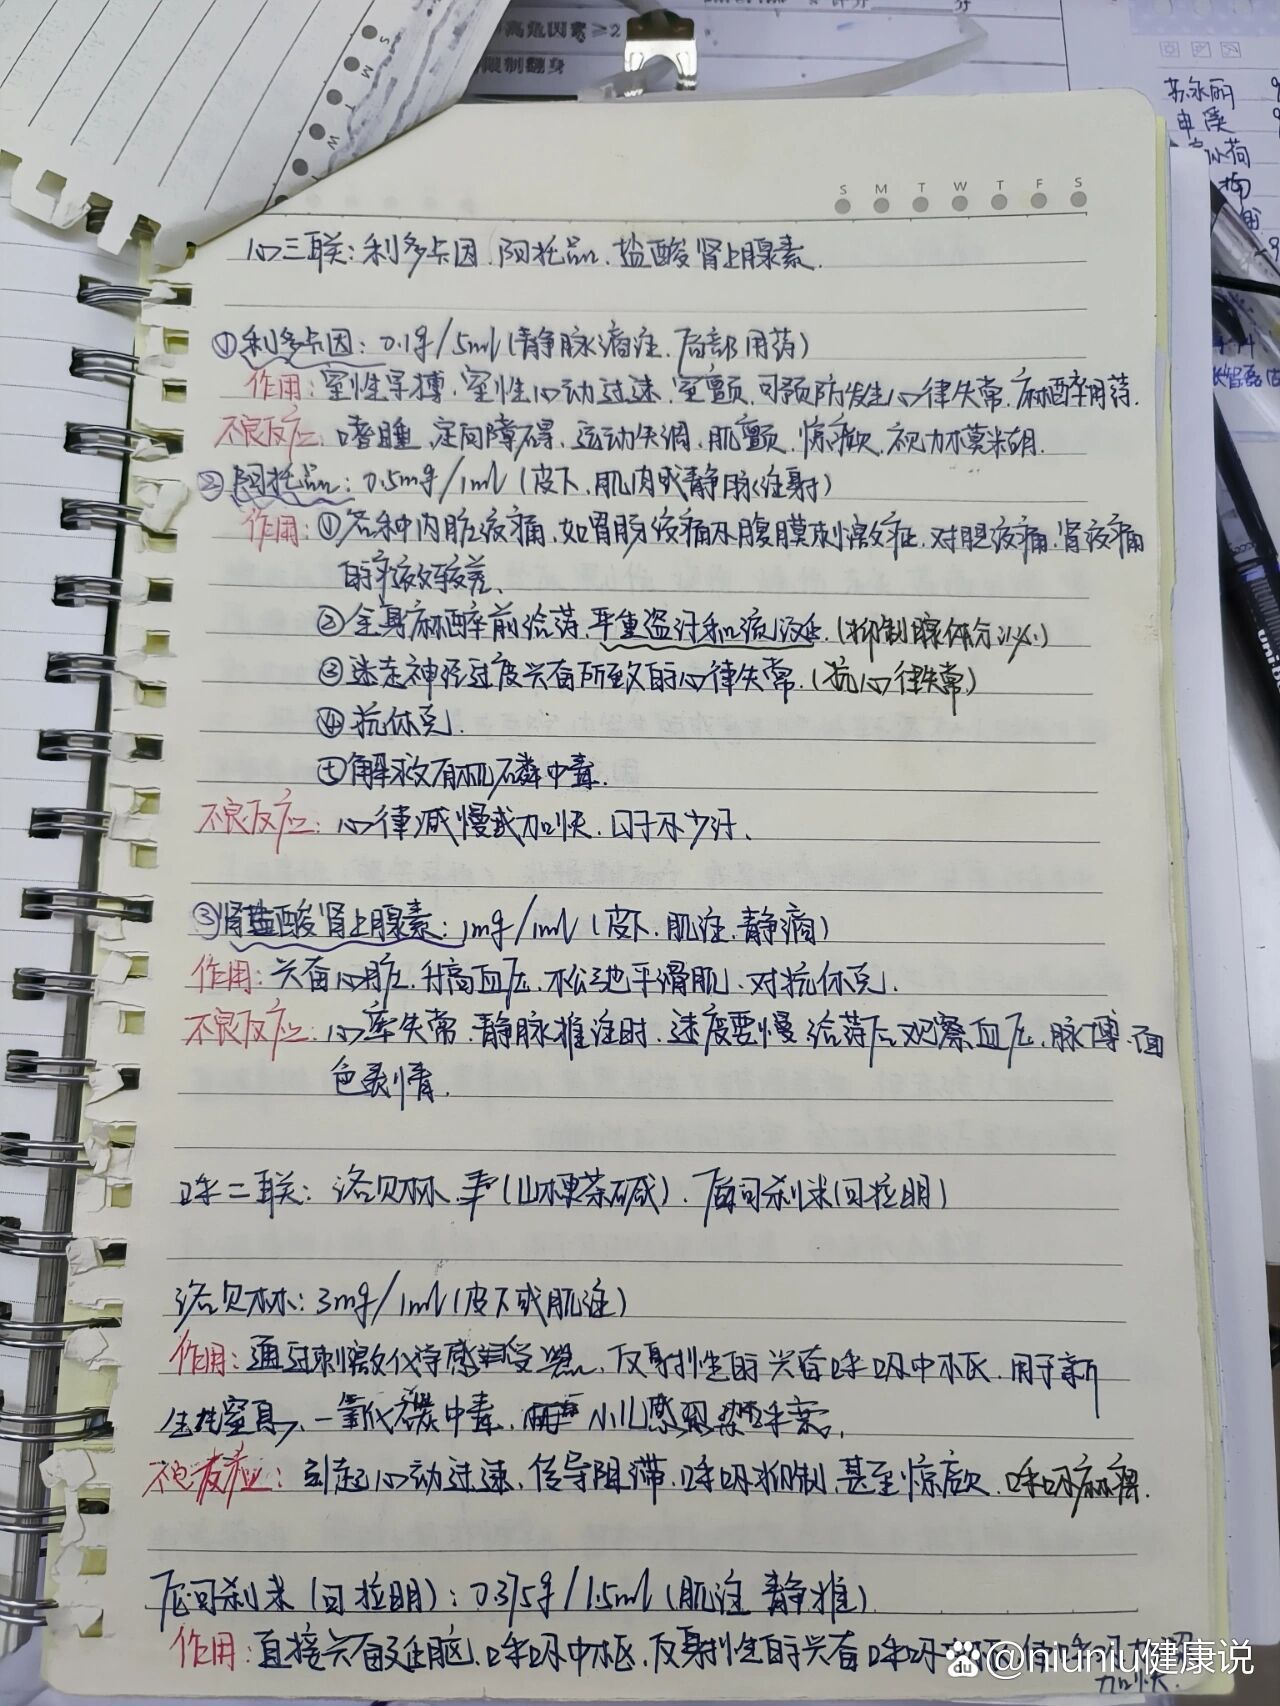 高危因素≥2
限制翻身
S M T W T F S
心三联：利多卡因、阿托品、盐酸肾上腺素.
①利多卡因：0.1g/5ml（静脉滴注、局部用药）
作用：室性早搏、室性心动过速、室颤、可预防发生心律失常、麻醉用药.
不良反应：嗜睡、定向障碍、运动失调、肌颤、惊厥、视力模糊.
②阿托品：0.5mg/1ml（皮下、肌内或静脉注射）
作用：①各种内脏绞痛、如胃肠绞痛及腹膜刺激症、对胆绞痛、肾绞痛
的疗效较差、
②全身麻醉前给药、严重盗汗和流涎.（抑制腺体分泌）
③迷走神经过度兴奋所致的心律失常.（抗心律失常）
④抗休克.
⑤解救有机磷中毒.
不良反应：心律减慢或加快、口干不少汗、
③肾盐酸肾上腺素：1mg/1ml（皮下、肌注、静滴）
作用：兴奋心脏、升高血压、松弛平滑肌、对抗休克.
不良反应：心率失常、静脉推注时、速度要慢、给药后观察血压、脉搏、面
色表情.
呼二联：洛贝林（山梗菜碱）、尼可刹米（可拉明）
洛贝林：3mg/1ml（皮下或肌注）
作用：通过刺激化学感受器、反射性的兴奋呼吸中枢、用于新
生儿窒息、一氧化碳中毒、小儿感染呼衰.
不良反应：引起心动过速、传导阻滞、呼吸抑制、甚至惊厥、呼吸麻痹.
尼可刹米（可拉明）：0.375g/1.5ml（肌注 静推）
作用：直接兴奋延脑、呼吸中枢、反射性的兴奋呼吸
加快.
@niuniu健康说